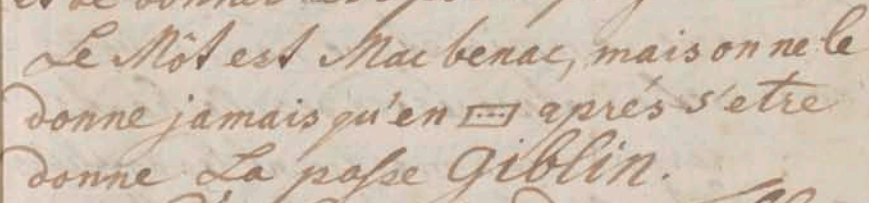 Le Môt est Macbenac, mais on ne le
donne jamais qu'en aprés s'etre
donne La passe Giblin.